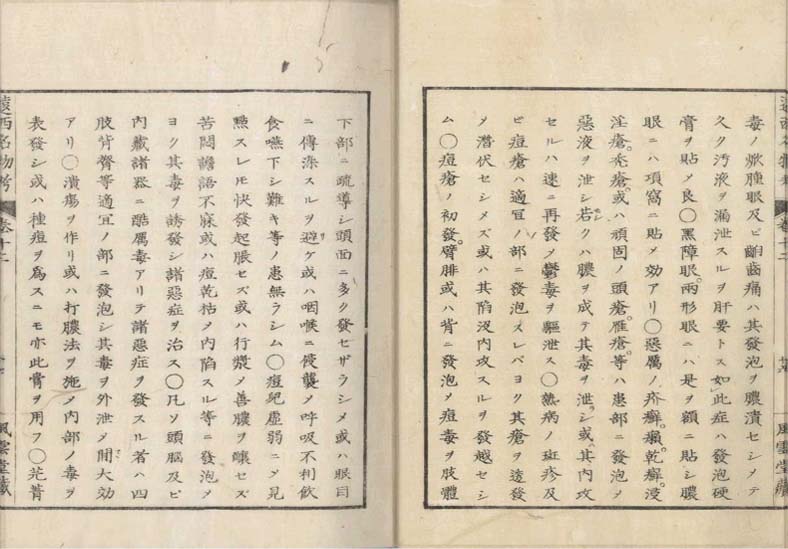 毒ノ焮腫眼及ビ齲齒痛ハ其發泡ヲ膿潰セシメテ
久ク汚液ヲ漏泄スルヲ肝要トス如此症ハ發泡硬
膏ヲ貼メ良〇黑障眼。兩形眼ニハ是ヲ額ニ貼シ膿
眼ニハ項窩ニ貼メ効アリ〇惡厲ノ疥癬。癩。乾癬。浸
淫瘡。禿瘡。或ハ頑固ノ頭瘡。雁瘡。等ハ患部ニ發泡メ
惡液ヲ泄シ若クハ膿ヲ成テ其毒ヲ泄シ或其内攻
セルハ速ニ再發メ鬱毒ヲ驅泄ス〇熱病ノ斑疹及
ビ痘瘡ハ適宜ノ部ニ發泡スレバヨク其瘡ヲ透發
メ潜伏セシメズ或ハ其陷没内攻スルヲ發越セシ
ム〇痘瘡ノ初發。臂腓或ハ背ニ發泡メ痘毒ヲ肢體
遠西名物考 卷十二 風雲堂藏
下部ニ疏導シ頭面ニ多ク發セザラシメ或ハ眼目
ニ傳染スルヲ避ケ或ハ咽喉ニ侵襲メ呼吸不利飲
食嚥下シ難キ等ノ患無ラシム〇痘皰虚弱ニメ見
㸃スレモ快發起脹セズ或ハ行漿メ善膿ヲ釀セズ
苦悶譫語不寐或ハ痘乾枯メ内陷スル等ニ發泡メ
ヨク其毒ヲ誘發シ諸惡症ヲ治ス〇凡ソ頭腦及ビ
内藏諸器ニ酷厲毒アリテ諸惡症ヲ發スル者ハ四
肢背臍等適宜ノ部ニ發泡シ其毒ヲ外泄メ間大効
アリ〇潰瘍ヲ作リ或ハ打膿法ヲ施メ内部ノ毒ヲ
表發シ或ハ種痘ヲ爲スニモ亦此膏ヲ用フ〇芫菁
遠西名物考 卷十二 風雲堂藏